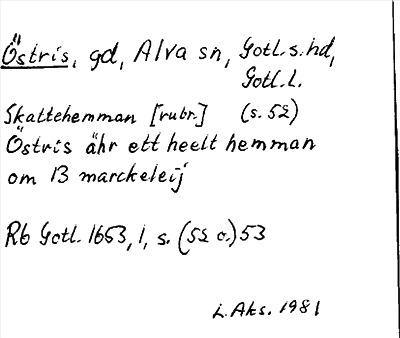 Östris, gd, Alva sn, Gotl.s.hd,
Gotl.l.
Skattehemman [rubr.] (s. 52)
Östris ähr ett heelt hemman
om 13 marckeleij
Rb Gotl. 1653, 1, s. (52 o.) 53
L. Aks. 1981